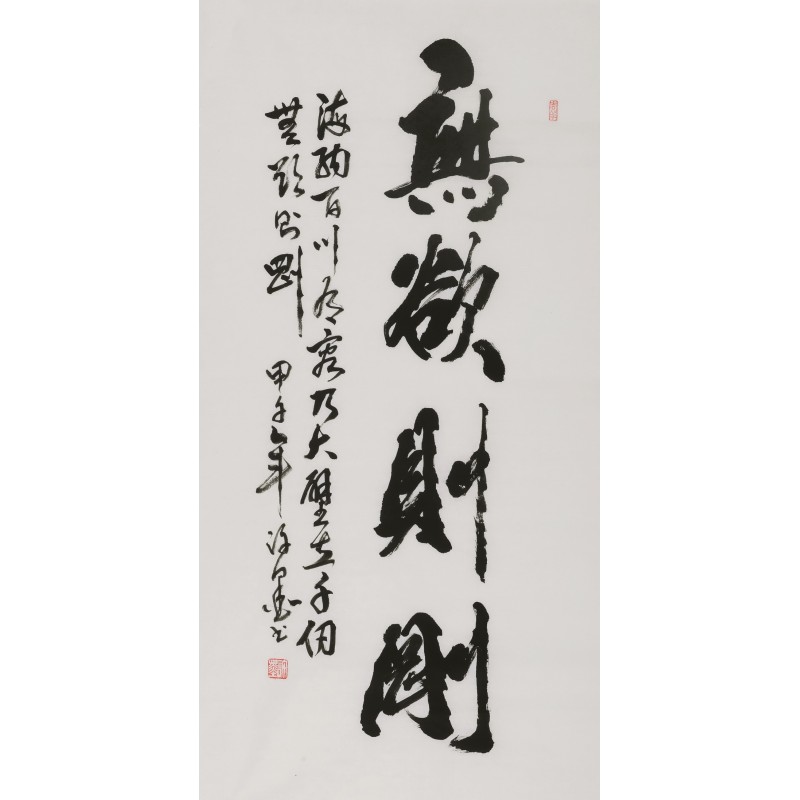 無欲則剛
海納百川有容乃大壁立千仞
無欲則剛 甲午年 書